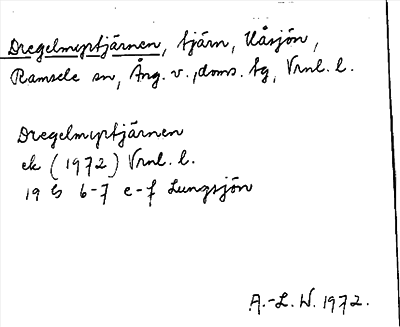 Dregelmyrtjärnen, tjärn, Uåsjön,
Ramsele sn, Ång. v., doms. tg, Vrnl. l.
Dregelmyrtjärnen
ek (1972) Vrnl. l.
19 G 6-7 e-f Lungsjön
A.-L. W. 1972.